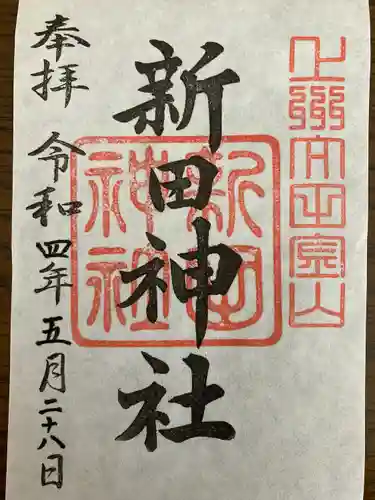 新田神社
奉拝
令和四年五月二十八日
新田
神社